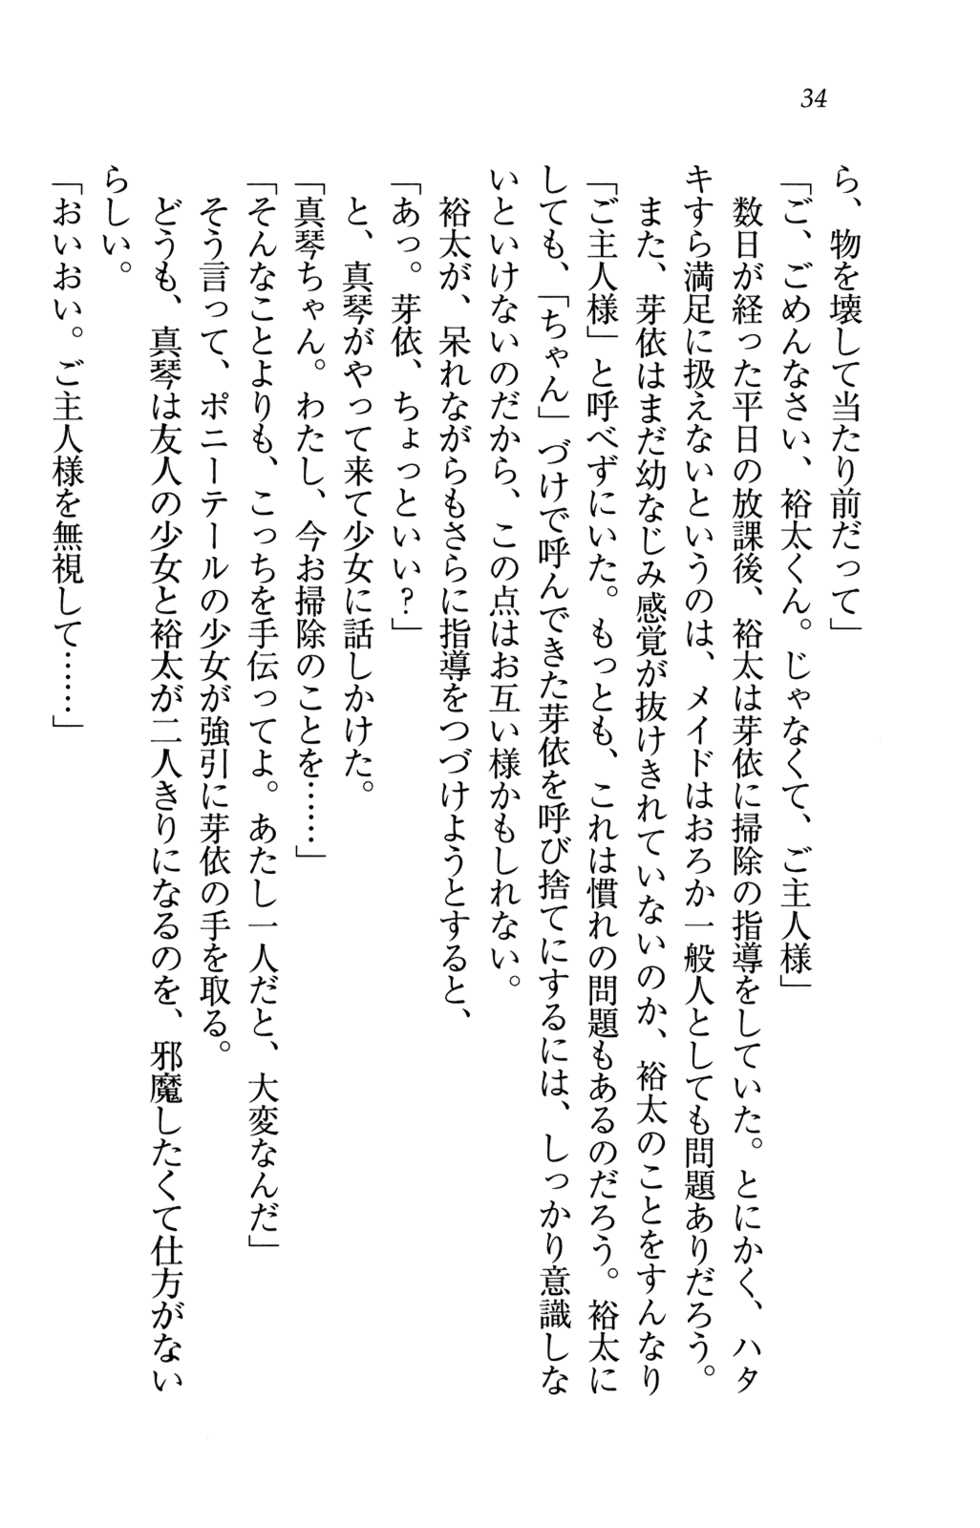 34
ら、物を壊して当たり前だって」
「ご、ごめんなさい、裕太くん。じゃなくて、ご主人様」
　数日が経った平日の放課後、裕太は芽依に掃除の指導をしていた。とにかく、ハタ
キすら満足に扱えないというのは、メイドはおろか一般人としても問題ありだろう。
　また、芽依はまだ幼なじみ感覚が抜けきれていないのか、裕太のことをすんなり
「ご主人様」と呼べずにいた。もっとも、これは慣れの問題もあるのだろう。裕太に
しても、「ちゃん」づけで呼んできた芽依を呼び捨てにするには、しっかり意識しな
いといけないのだから、この点はお互い様かもしれない。
　裕太が、呆れながらもさらに指導をつづけようとすると、
「あっ。芽依、ちょっといい？」
　と、真琴がやって来て少女に話しかけた。
「真琴ちゃん。わたし、今お掃除のことを……」
「そんなことよりも、こっちを手伝ってよ。あたし一人だと、大変なんだ」
　そう言って、ポニーテールの少女が強引に芽依の手を取る。
　どうも、真琴は友人の少女と裕太が二人きりになるのを、邪魔したくて仕方がない
らしい。
「おいおい。ご主人様を無視して……」